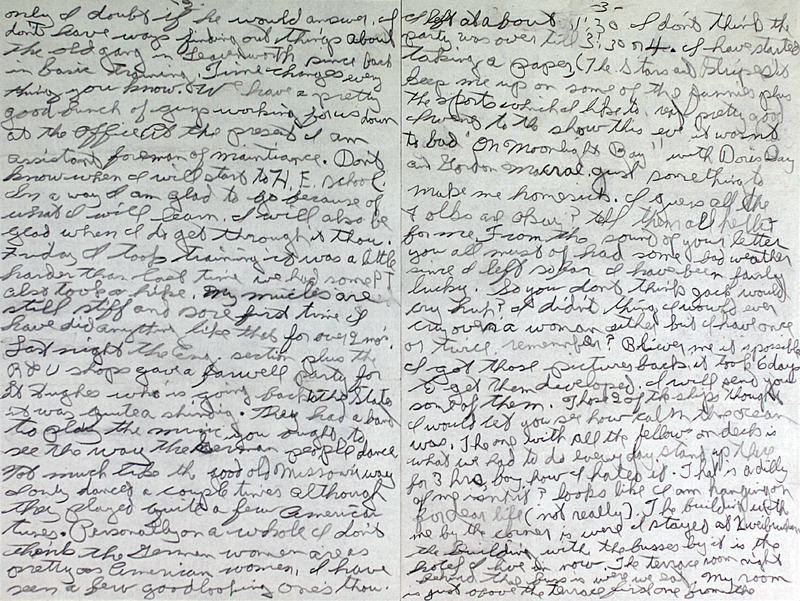 only I doubt if he would answer, I
don't have ways finding out things about
the old gang in Leavenworth since back
in basic training. Time changes every
thing you know. We have a pretty
good bunch of guys working for us down
at the office. At the present I am
assistant foreman of maintiance. Don't
know when I will start to H. E. School.
In a way I am glad to go because of
what I will learn. I will also be
glad when I do get through it thou.
Friday I took training it was a little
harder than last time we had some PT
also took a hike. My mucles are
still stiff and sore first time I
have did anything like that for over 2 mo's.
Last night the Eng. section plus the
R & U shops gave a farwell party for
Lt Hughes who is going back to the States
it was quite a shindig. They had a band
to play the music, you ought to
see the way the German people dance
not much like the good old Missouri way
I only danced a couple times although
they played quite a few American
tunes. Personally on a whole I don't
think the German women are as
pretty as American women, I have
seen a few good looking one's thou.
-3-
I left at about 11:30 I don't think the
party was over till 3:30 or 4. I have started
taking a paper (The Stars and Stripes) it
keep me up on some of the funnies plus
the sports which I like to, real pretty good
I went to the show this eve it wasn't
to bad "On Moonlight Bay" with Doris Day
and Gordon Macrae just something to
make me homesick. I guess all the
Folks are Okay? Tell them all hello
for me. From the sound of your letter
you all must of had some bad weather
since I left so far I have been fairly
lucky. So you don't think Jack would
cry huh? I didn't think I would ever
cry over a woman either but I have once
or twice, remember? Bliever me it is possible
I got those pictures back, it took 6 days
to get them developed. I will send you
some of them. Those 2 of the ships thought
I would let you see how calm the ocean
was. The one with all the fellows on deck is
what we had to do everyday stand up there
for 3 hrs, boy how I hated it. That is a dilly
of me isn't it? looks like I am hanging on
for dear life (not really). The building with
me by the corner is were I stayed at Zweibrucken
the building with the busses by it is the
hotel I live in now. The terrace room right
behind the bus is were we eat, my room
is just above the terrace first one from the